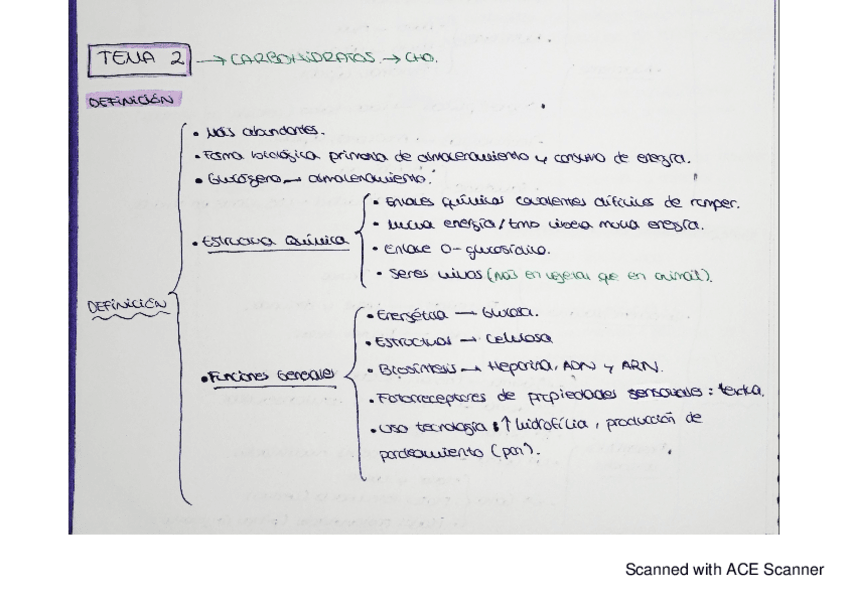 TEMA 2 → CARBOHIDRATOS → CHO.
DEFINICIÓN
• Más abundantes.
• Forma biológica primaria de almacenamiento y consumo de energía.
• Glucógeno → almacenamiento.
• Enlaces químicos covalentes difíciles de romper.
• Mucha energía / tmo libera mucha energía.
• Estructura Química
• Enlace O-glucosídico.
• Seres vivos (más en vegetal que en animal).
DEFINICIÓN
• Energética → Glucosa.
• Estructural → Celulosa
• Funciones Generales
• Biosíntesis → Heparina, ADN y ARN.
• Fotorreceptores de propiedades sensoriales: textura.
• Uso tecnología: ↑ hidrofilia, producción de
pardeamiento (pan).
Scanned with ACE Scanner